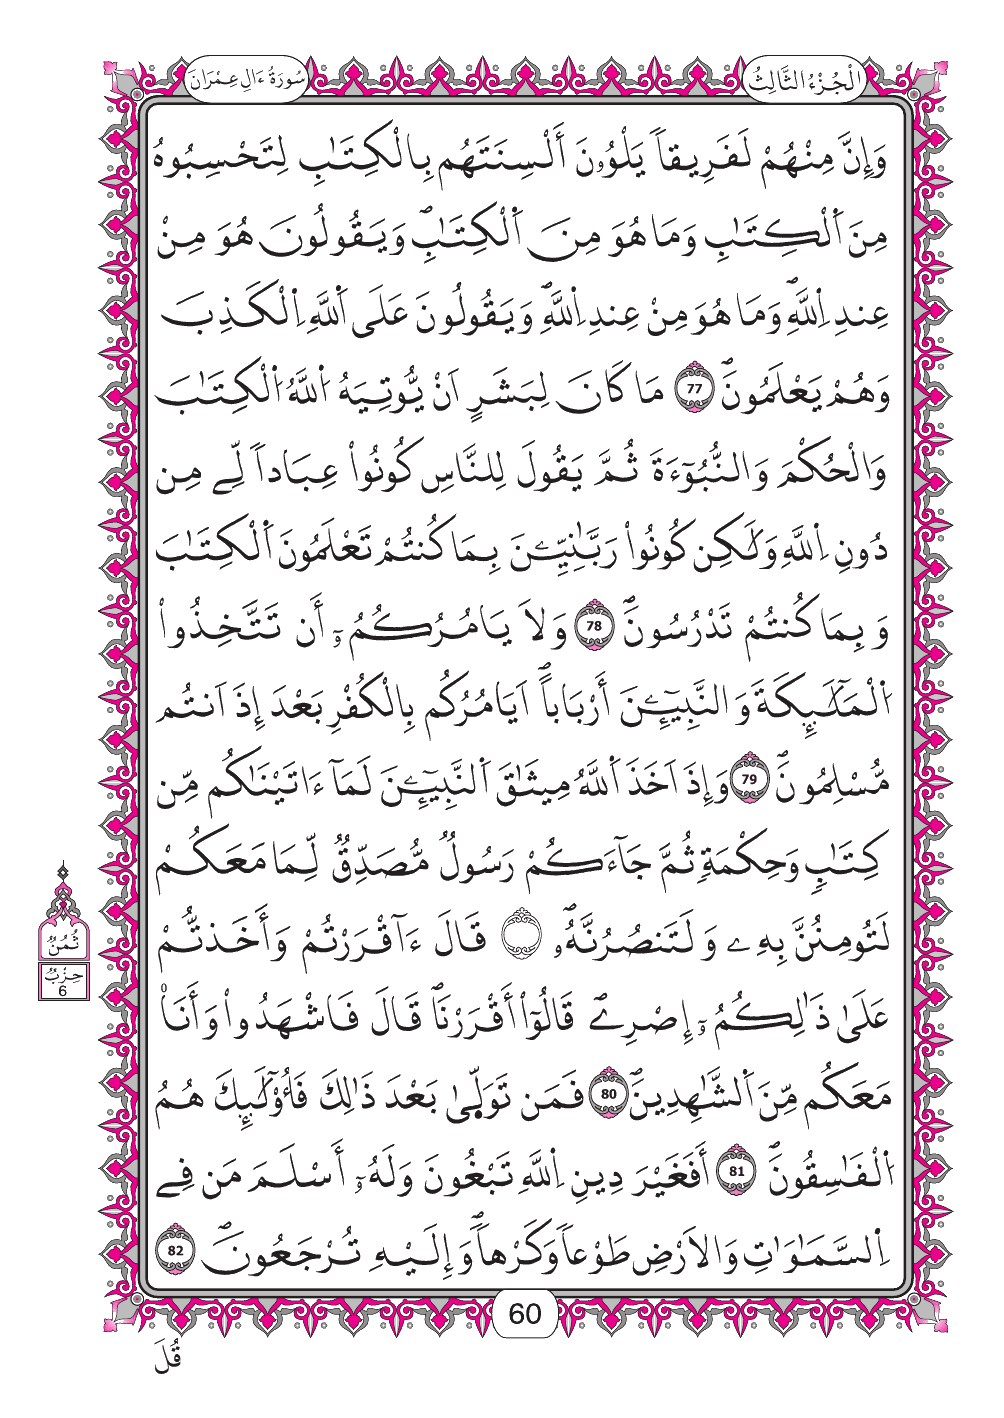 الْجُزْءُ الثَّالِثُ
سُورَةُ ءَالِ عِمْرَانَ
وَإِنَّ مِنْهُمْ لَفَرِيقاٗ يَلْوُۥنَ أَلْسِنَتَهُم بِالْكِتَٰبِ لِتَحْسِبُوهُ
مِنَ اَ۬لْكِتَٰبِ وَمَا هُوَ مِنَ اَ۬لْكِتَٰبِۖ وَيَقُولُونَ هُوَ مِنْ
عِندِ اِ۬للَّهِۖ وَمَا هُوَ مِنْ عِندِ اِ۬للَّهِۖ وَيَقُولُونَ عَلَى اَ۬للَّهِ اِ۬لْكَذِبَ
وَهُمْ يَعْلَمُونَۖ 77 مَا كَانَ لِبَشَرٍ اَنْ يُّوتِيَهُ اُ۬للَّهُ اُ۬لْكِتَٰبَ
وَالْحُكْمَ وَالنُّبُوٓءَةَ ثُمَّ يَقُولَ لِلنَّاسِ كُونُواْ عِبَاداٗ لِّے مِن
دُونِ اِ۬للَّهِ وَلَٰكِن كُونُواْ رَبَّٰنِيِّـۧنَ بِمَا كُنتُمْ تَعْلَمُونَ اَ۬لْكِتَٰبَ
وَبِمَا كُنتُمْ تَدْرُسُونَۖ 78 وَلَا يَامُرُكُمُۥٓ أَن تَتَّخِذُواْ
اُ۬لْمَلَٰٓئِكَةَ وَالنَّبِيٓـِٕۧنَ أَرْبَاباًۖ اَيَامُرُكُم بِالْكُفْرِ بَعْدَ إِذَ اَنتُم
مُّسْلِمُونَۖ 79 وَإِذَ اَخَذَ اَ۬للَّهُ مِيثَٰقَ اَ۬لنَّبِيٓـِٕۧنَ لَمَآ ءَاتَيْنَٰكُم مِّن
كِتَٰبٖ وَحِكْمَةٖ ثُمَّ جَآءَكُمْ رَسُولٞ مُّصَدِّقٞ لِّمَا مَعَكُمْ
لَتُومِنُنَّ بِهِۦ وَلَتَنصُرُنَّهُۥۖ قَالَ ءَآقْرَرْتُمْ وَأَخَذتُّمْ
عَلَىٰ ذَٰلِكُمُۥٓ إِصْرِےۖ قَالُوٓاْ أَقْرَرْنَاۖ قَالَ فَاشْهَدُواْ وَأَنَا۠
مَعَكُم مِّنَ اَ۬لشَّٰهِدِينَۖ 80 فَمَن تَوَلّ۪ىٰ بَعْدَ ذَٰلِكَ فَأُوْلَٰٓئِكَ هُمُ
اُ۬لْفَٰسِقُونَۖ 81 أَفَغَيْرَ دِينِ اِ۬للَّهِ تَبْغُونَ وَلَهُۥٓ أَسْلَمَ مَن فِے
اِ۬لسَّمَٰوَٰتِ وَالَارْضِ طَوْعاٗ وَكَرْهاٗۖ وَإِلَيْهِ تُرْجَعُونَۖ 82
ثُمُنٞ
حِزْبٞ
6
60
قُلَ